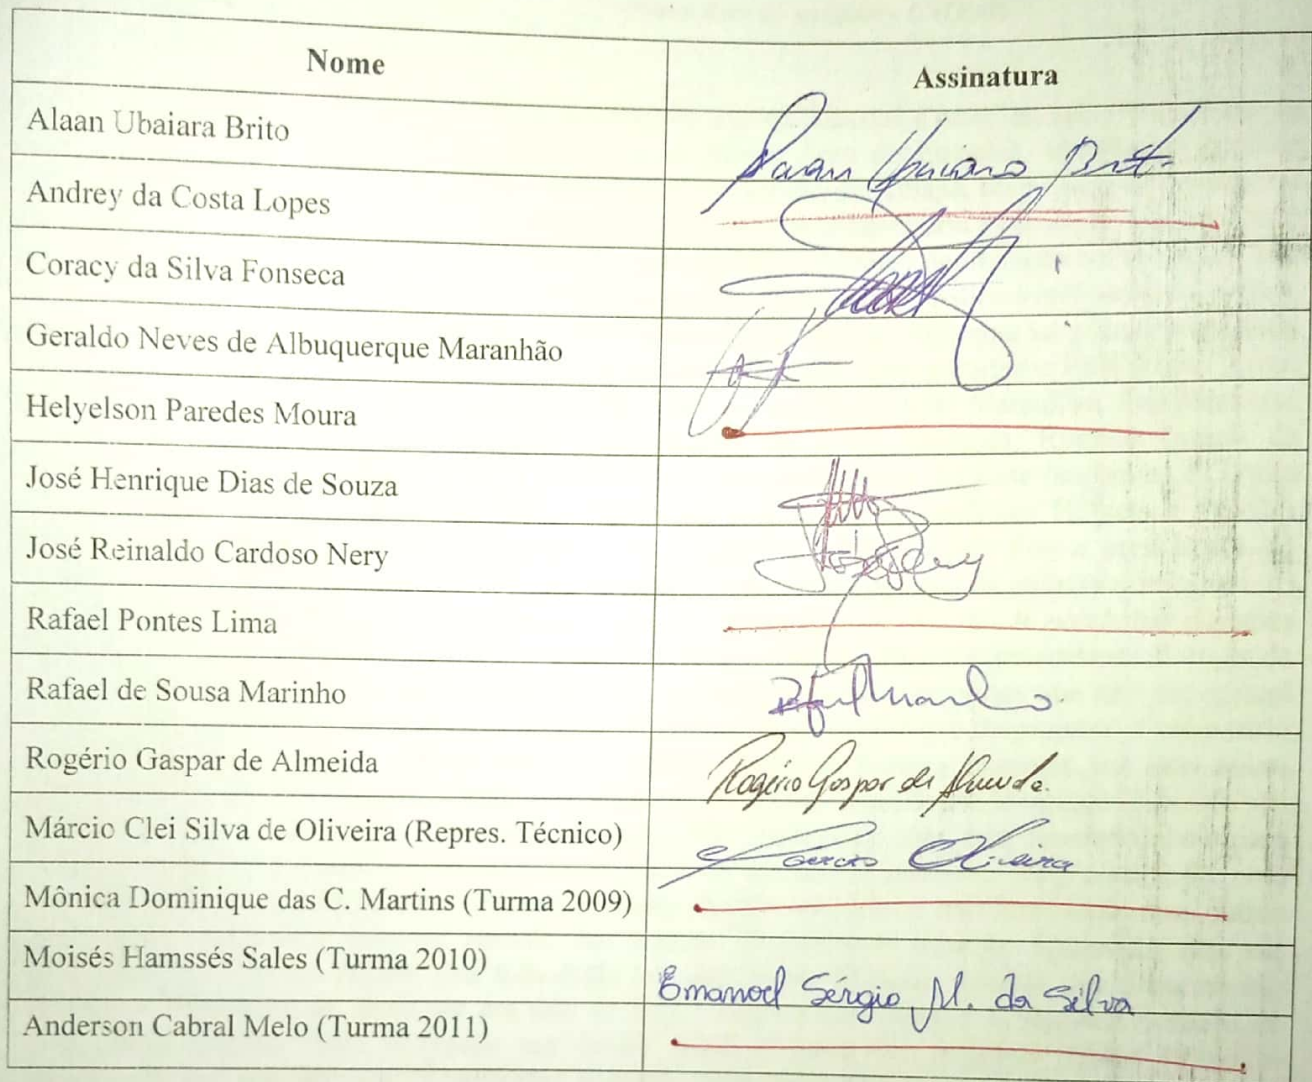 Nome Assinatura
Alaan Ubaiara Brito Alaan Ubaiara Brito
Andrey da Costa Lopes
Coracy da Silva Fonseca
Geraldo Neves de Albuquerque Maranhão
Helyelson Paredes Moura
José Henrique Dias de Souza
José Reinaldo Cardoso Nery
Rafael Pontes Lima
Rafael de Sousa Marinho
Rogério Gaspar de Almeida Rogério Gaspar de Almeida
Márcio Clei Silva de Oliveira (Repres. Técnico) Marcio Oliveira
Mônica Dominique das C. Martins (Turma 2009)
Moisés Hamssés Sales (Turma 2010) Emanoel Sérgio M. da Silva
Anderson Cabral Melo (Turma 2011)